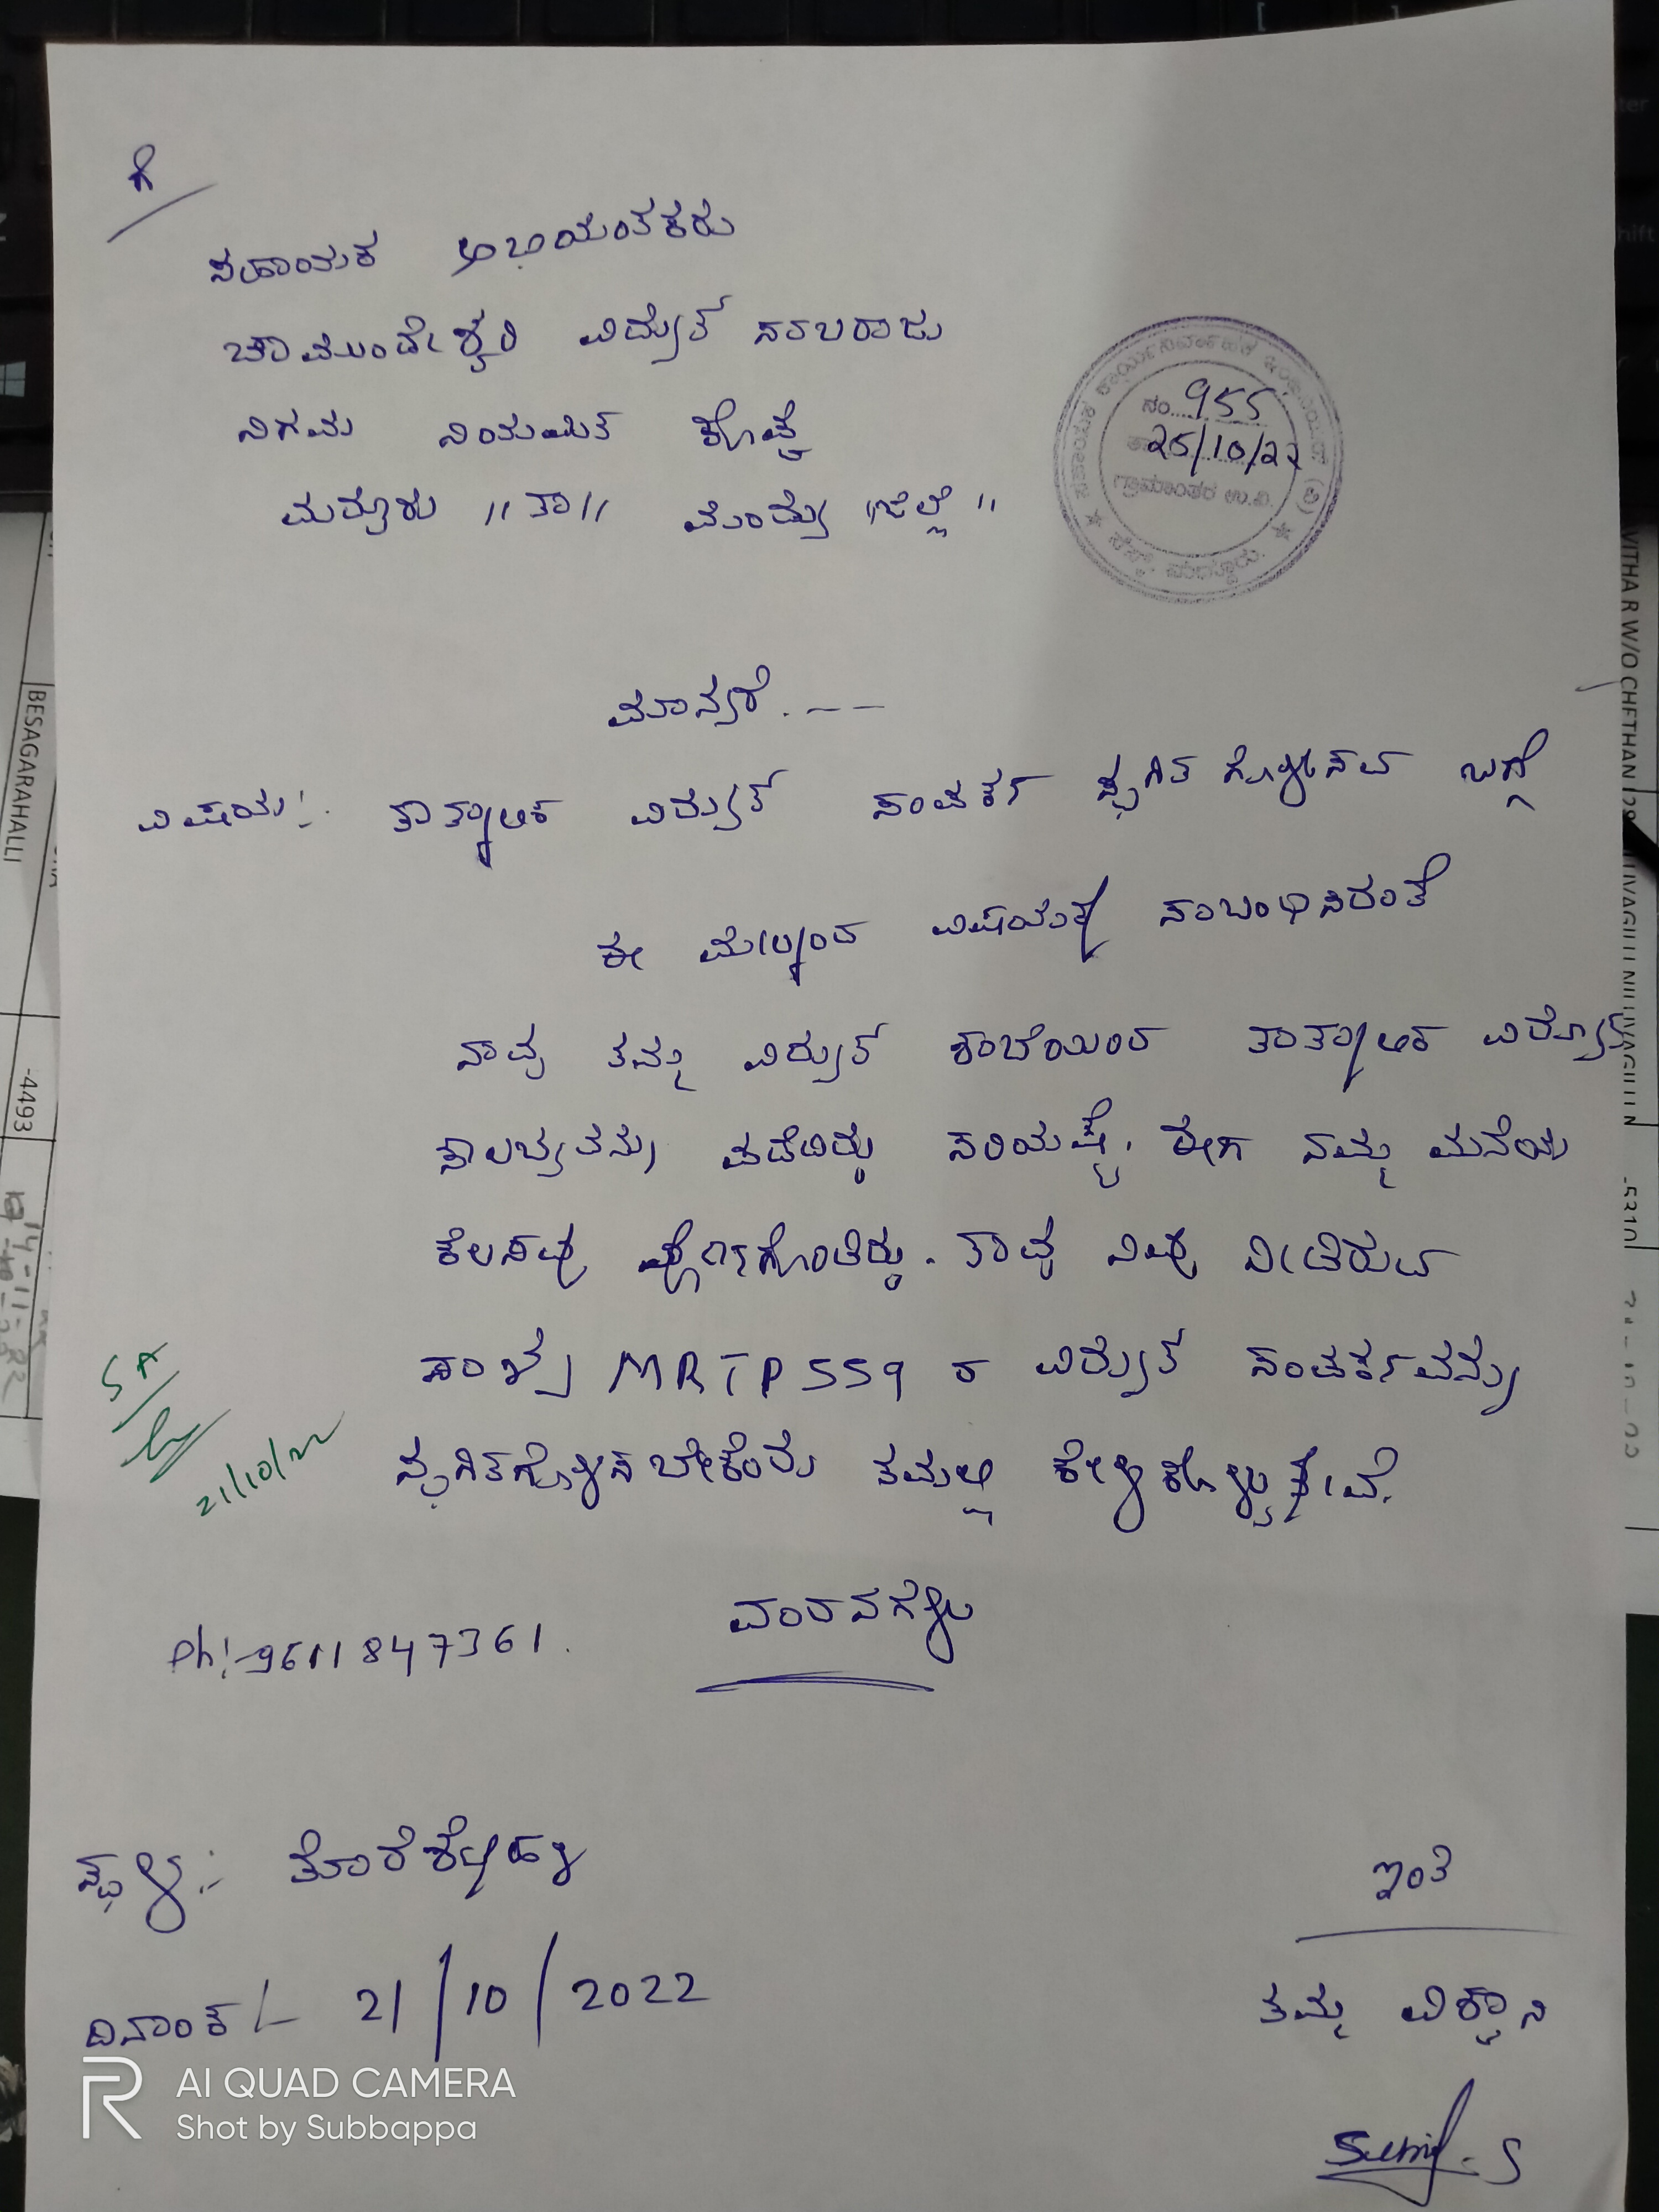 ಗೆ
ಸಹಾಯಕ ಅಭಿಯಂತಕರು
ಚಾಮುಂಡೇಶ್ವರಿ ವಿದ್ಯುತ್ ಸರಬರಾಜು
ನಿಗಮ ನಿಯಮಿತ ಕೊಪ್ಪ
ಮದ್ದೂರು "ತಾ" ಮಂಡ್ಯ "ಜಿಲ್ಲೆ"
ನಂ... 955
25/10/22
ಗ್ರಾಮಾಂತರ ಉ.ವಿ.
ಮಾನ್ಯರೆ.---
ವಿಷಯ:. ತಾತ್ಕಾಲಿಕ ವಿದ್ಯುತ್ ಸಂಪರ್ಕ ಸ್ಥಗಿತಗೊಳಿಸುವ ಬಗ್ಗೆ
ಈ ಮೇಲ್ಕಂಡ ವಿಷಯಕ್ಕೆ ಸಂಬಂಧಿಸಿದಂತೆ
ನಾವು ತಮ್ಮ ವಿದ್ಯುತ್ ಕಂಚೆಯಿಂದ ತಾತ್ಕಾಲಿಕ ವಿದ್ಯುತ್
ಸೌಲಭ್ಯವನ್ನು ಪಡೆದಿದ್ದು ಸರಿಯಷ್ಟೆ. ಈಗ ನಮ್ಮ ಮನೆಯ
ಕೆಲಸವು ಪೂರ್ಣಗೊಂಡಿದ್ದು. ತಾವು ನೀಡಿರುವ
ಸಂಖ್ಯೆ MRTP559 ರ ವಿದ್ಯುತ್ ಸಂಪರ್ಕವನ್ನು
ಸ್ಥಗಿತಗೊಳಿಸಬೇಕೆಂದು ತಮ್ಮಲ್ಲಿ ಕೇಳಿಕೊಳ್ಳುತ್ತೇವೆ.
SA
21/10/22
ವಂದನೆಗಳು
Ph:-9611847361.
ಸ್ಥಳ:- ತೊರೆಶೆಟ್ಟಹಳ್ಳಿ
ಇಂತಿ
ದಿನಾಂಕ:- 21/10/2022
ತಮ್ಮ ವಿಶ್ವಾಸಿ
Sunil.S
AI QUAD CAMERA
Shot by Subbappa
BESAGARAHALLI
-4493
VITHA R W/O CHETHAN
-5310